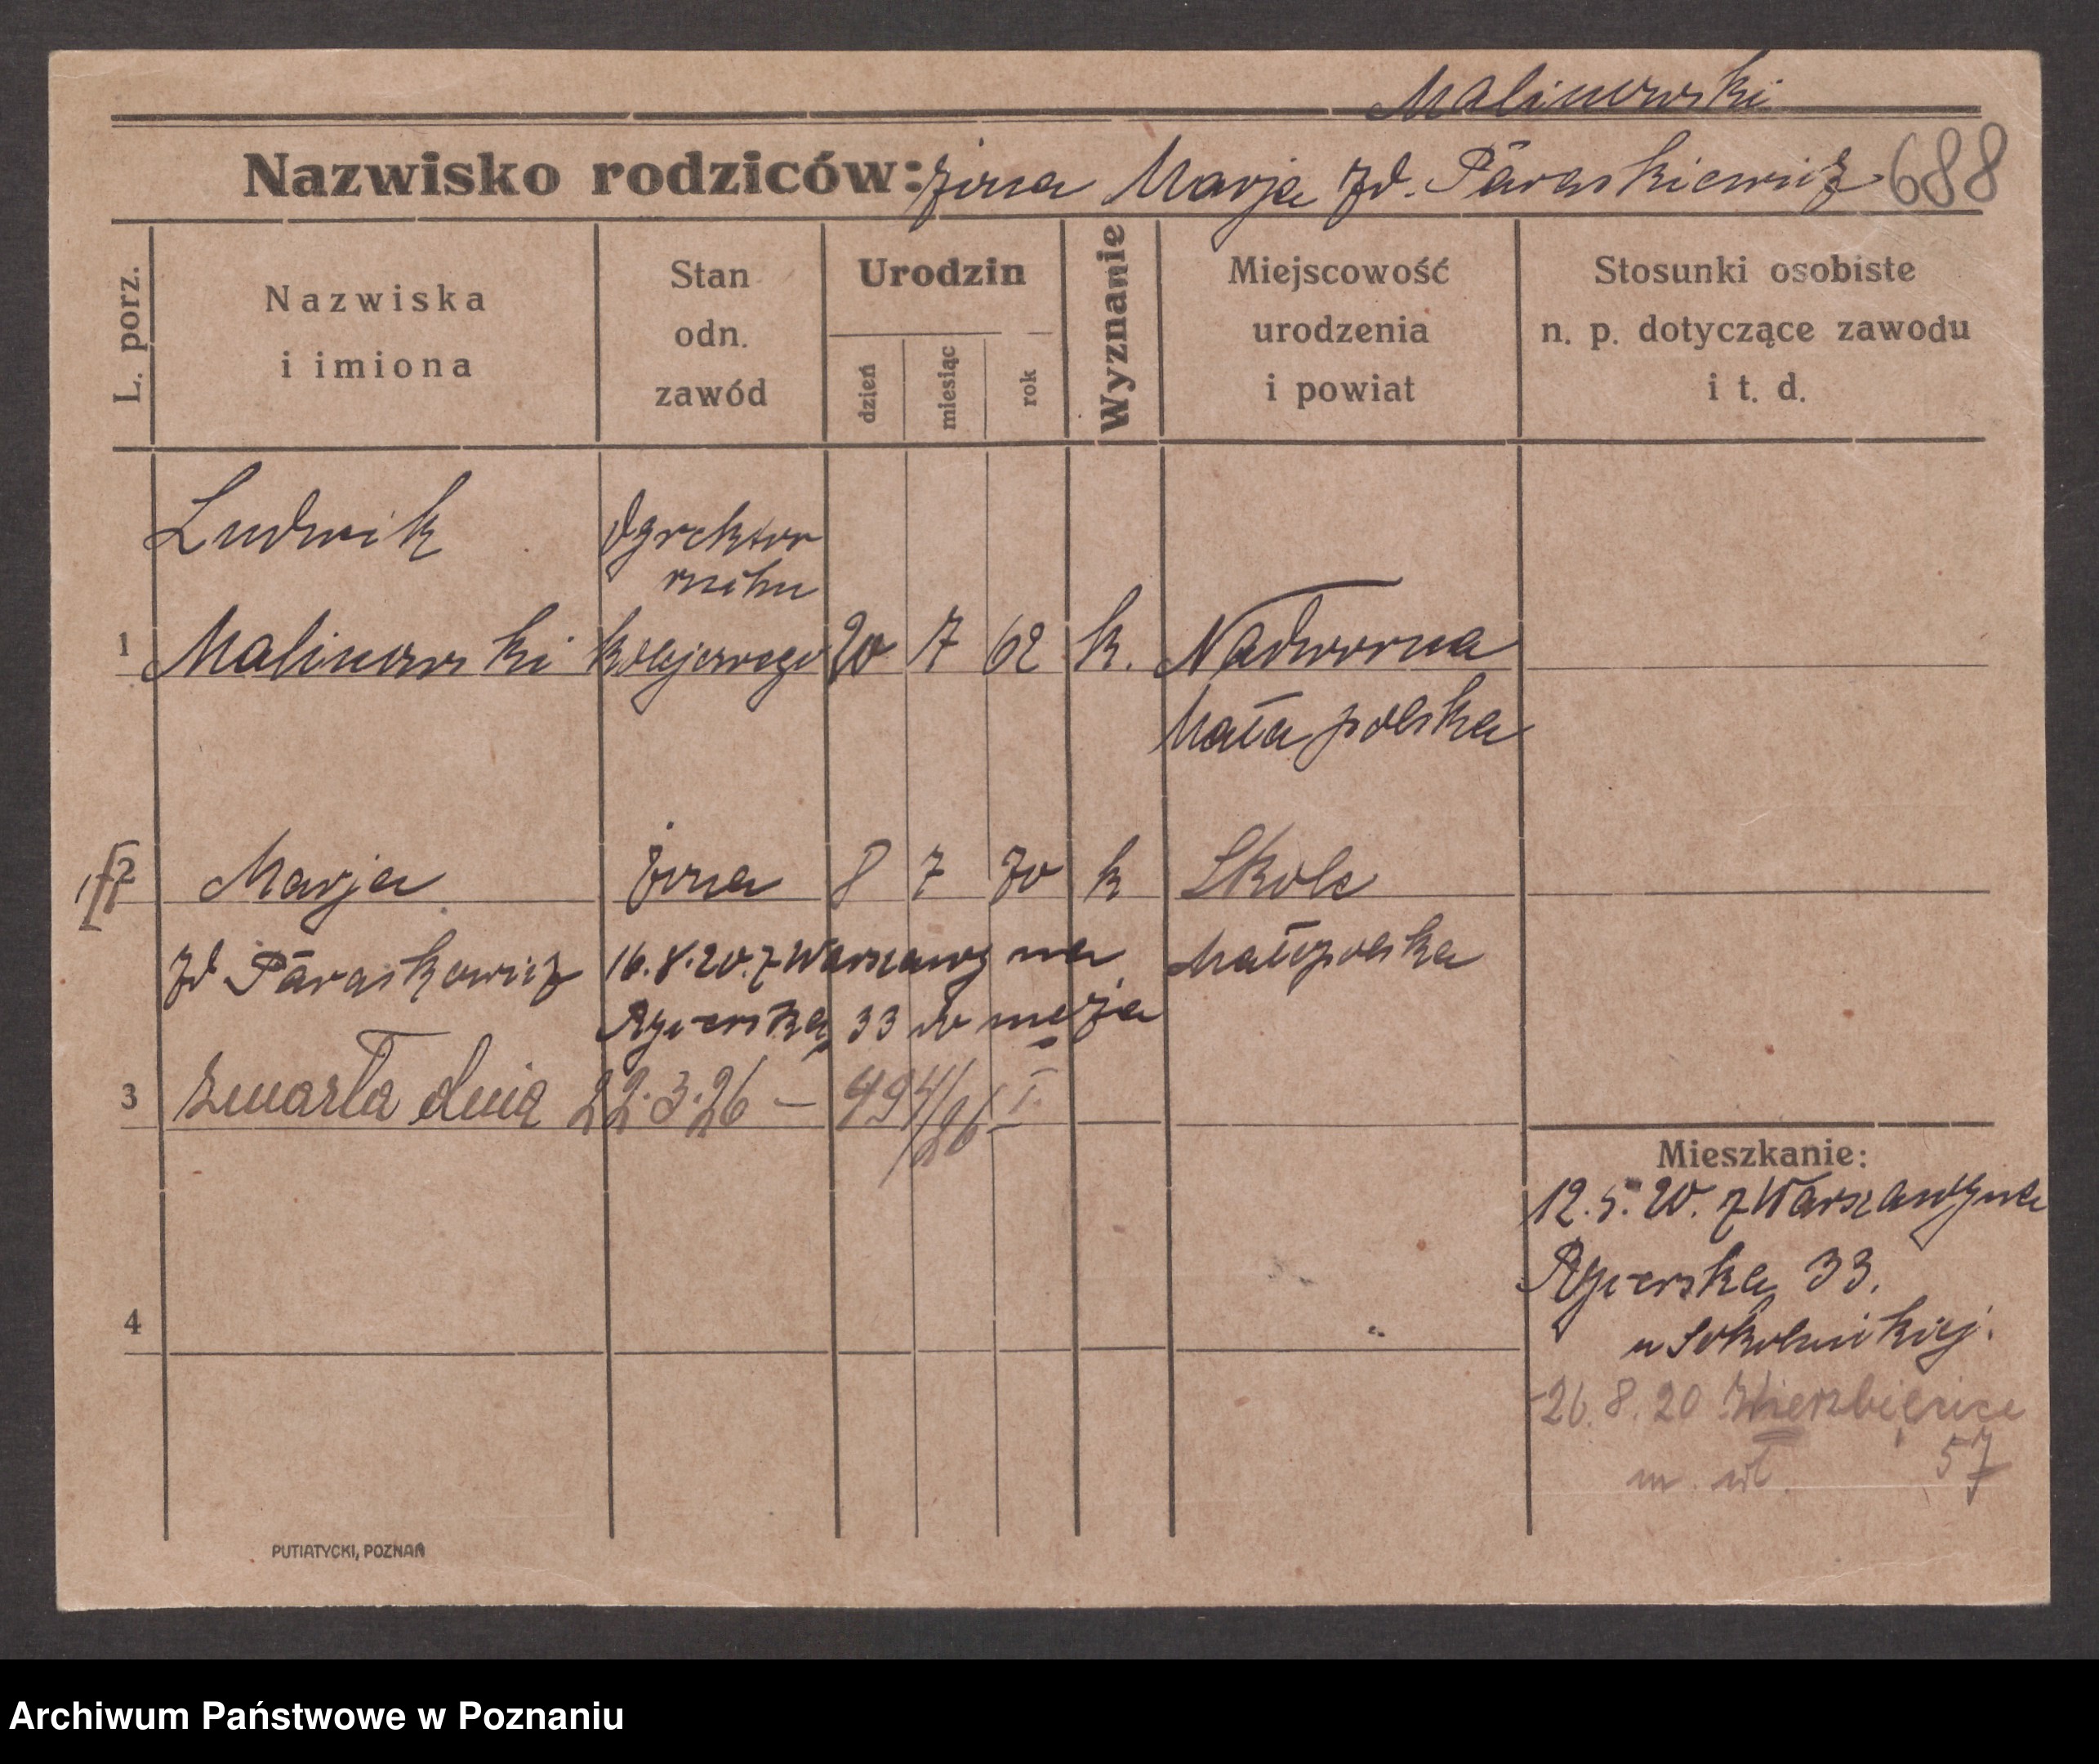 Malinowski
Nazwisko rodziców: żona Marja zd. Paraskiewicz 688
L. porz.
Nazwiska
i imiona
Stan
odn.
zawód
Urodzin
dzień
miesiąc
rok
Wyznanie
Miejscowość
urodzenia
i powiat
Stosunki osobiste
n. p. dotyczące zawodu
i t. d.
Ludwik dyrektor
ruchu
1 Malinowski kolejowego 20 7 62 k. Nadworna
Małapolska
2 Marja żona 8 7 70 k Skole
zd Paraskowicz 16.8.20. z Warszawy na Małopolska
33 do męża
3 zmarła dnia 22.3.26 — 494/26 I.
Mieszkanie:
12.5.20. z Warszawy na
33.
u Sokolnikiej.
4
26.8.20 Wierzbięcice
m. wł. 57
PUTIATYCKI, POZNAŃ
Archiwum Państwowe w Poznaniu